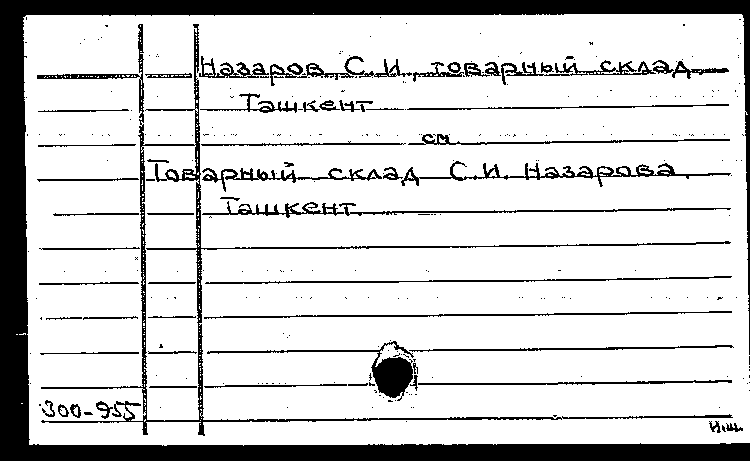 Назаров, С.И., товарный склад.
Ташкент
см.
Товарный склад С.И. Назарова.
Ташкент.
300-955